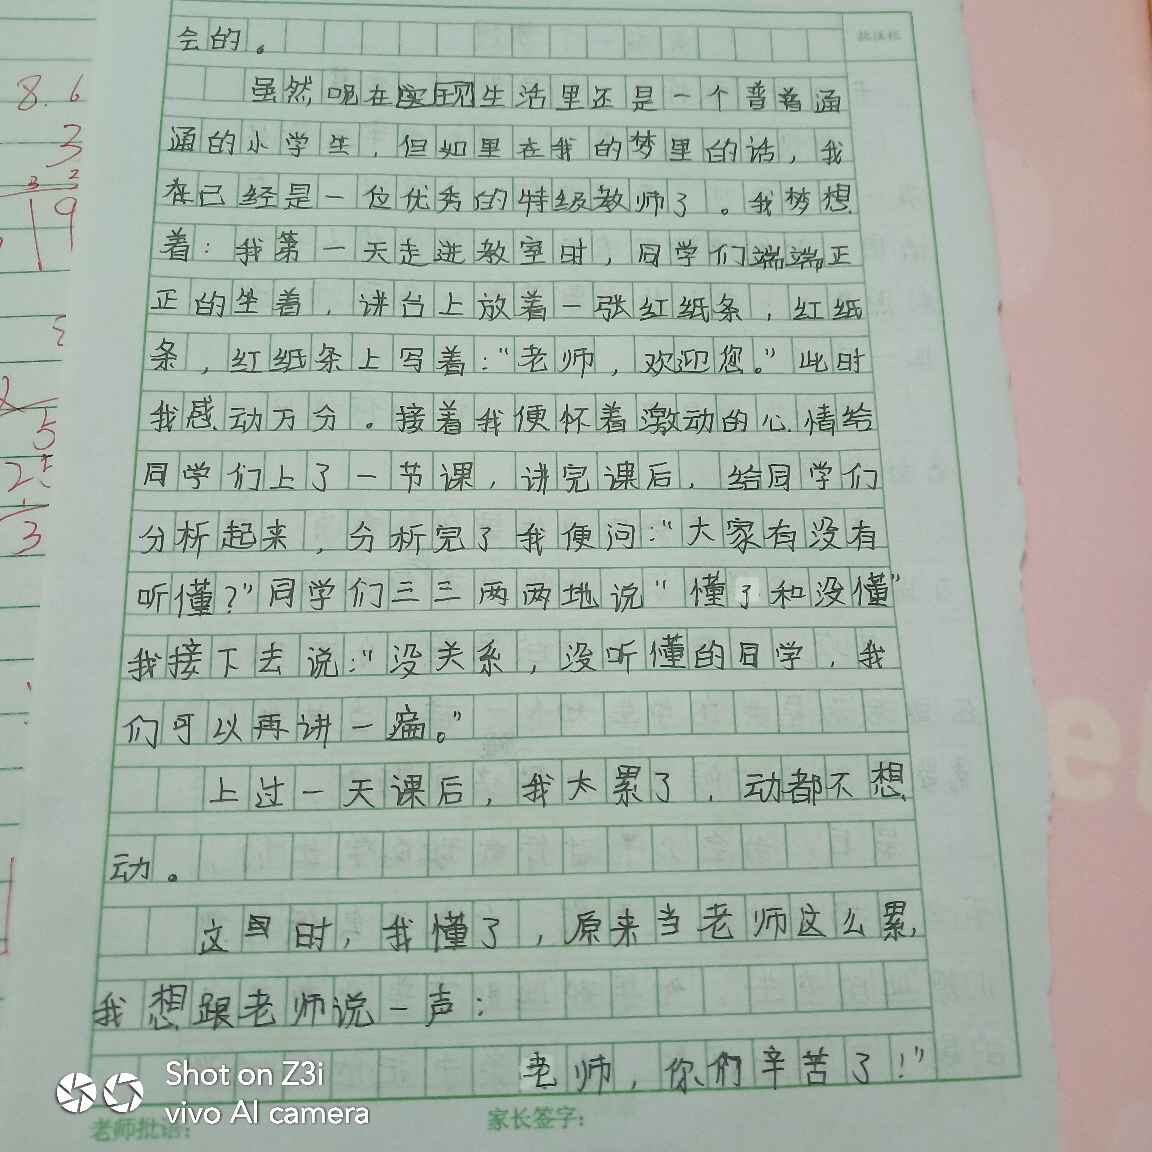 会的。
批注栏
虽然,现在实现生活里还是一个普普通
通的小学生,但如里在我的梦里的话,我
在已经是一位优秀的特级教师了。我梦想
着:我第一天走进教室时,同学们端端正
正的坐着,讲台上放着一张红纸条,红纸
条,红纸条上写着:“老师,欢迎您。”此时
我感动万分。接着我便怀着激动的心情给
同学们上了一节课,讲完课后,给同学们
分析起来,分析完了我便问:“大家有没有
听懂?”同学们三三两两地说“懂了和没懂”
我接下去说:“没关系,没听懂的同学,我
们可以再讲一遍。”
上过一天课后,我太累了,动都不想
动。
这时,我懂了,原来当老师这么累,
我想跟老师说一声:
老师,你们辛苦了!”
老师批语:
家长签字:
Shot on Z3i
vivo AI camera
8.6
3
3 2
19
2
5
2
3